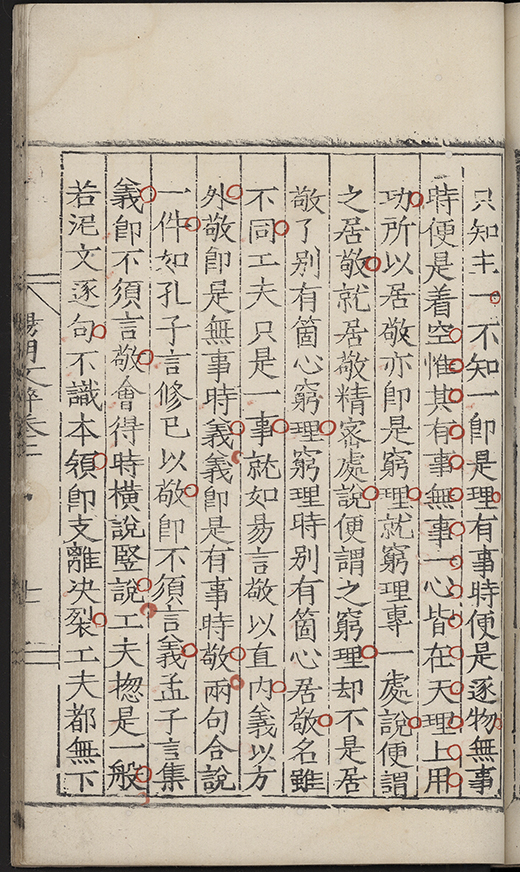 只知主一不知一即是理有事時便是逐物無事
時便是着空惟其有事無事一心皆在天理上用
功所以居敬亦即是窮理就窮理專一處說便謂
之居敬就居敬精宻處說便謂之窮理却不是居
敬了别有箇心窮理窮理時别有箇心居敬名雖
不同工夫只是一事就如昜言敬以直内義以方
外敬即是無事時義義即是有事時敬兩句合說
一件如孔子言修已以敬即不須言義孟子言集
義即不須言敬會得時橫說竪說工夫揔是一般
若泥文逐句不識本領即支離决裂工夫都無下
陽明文粹卷二
十一